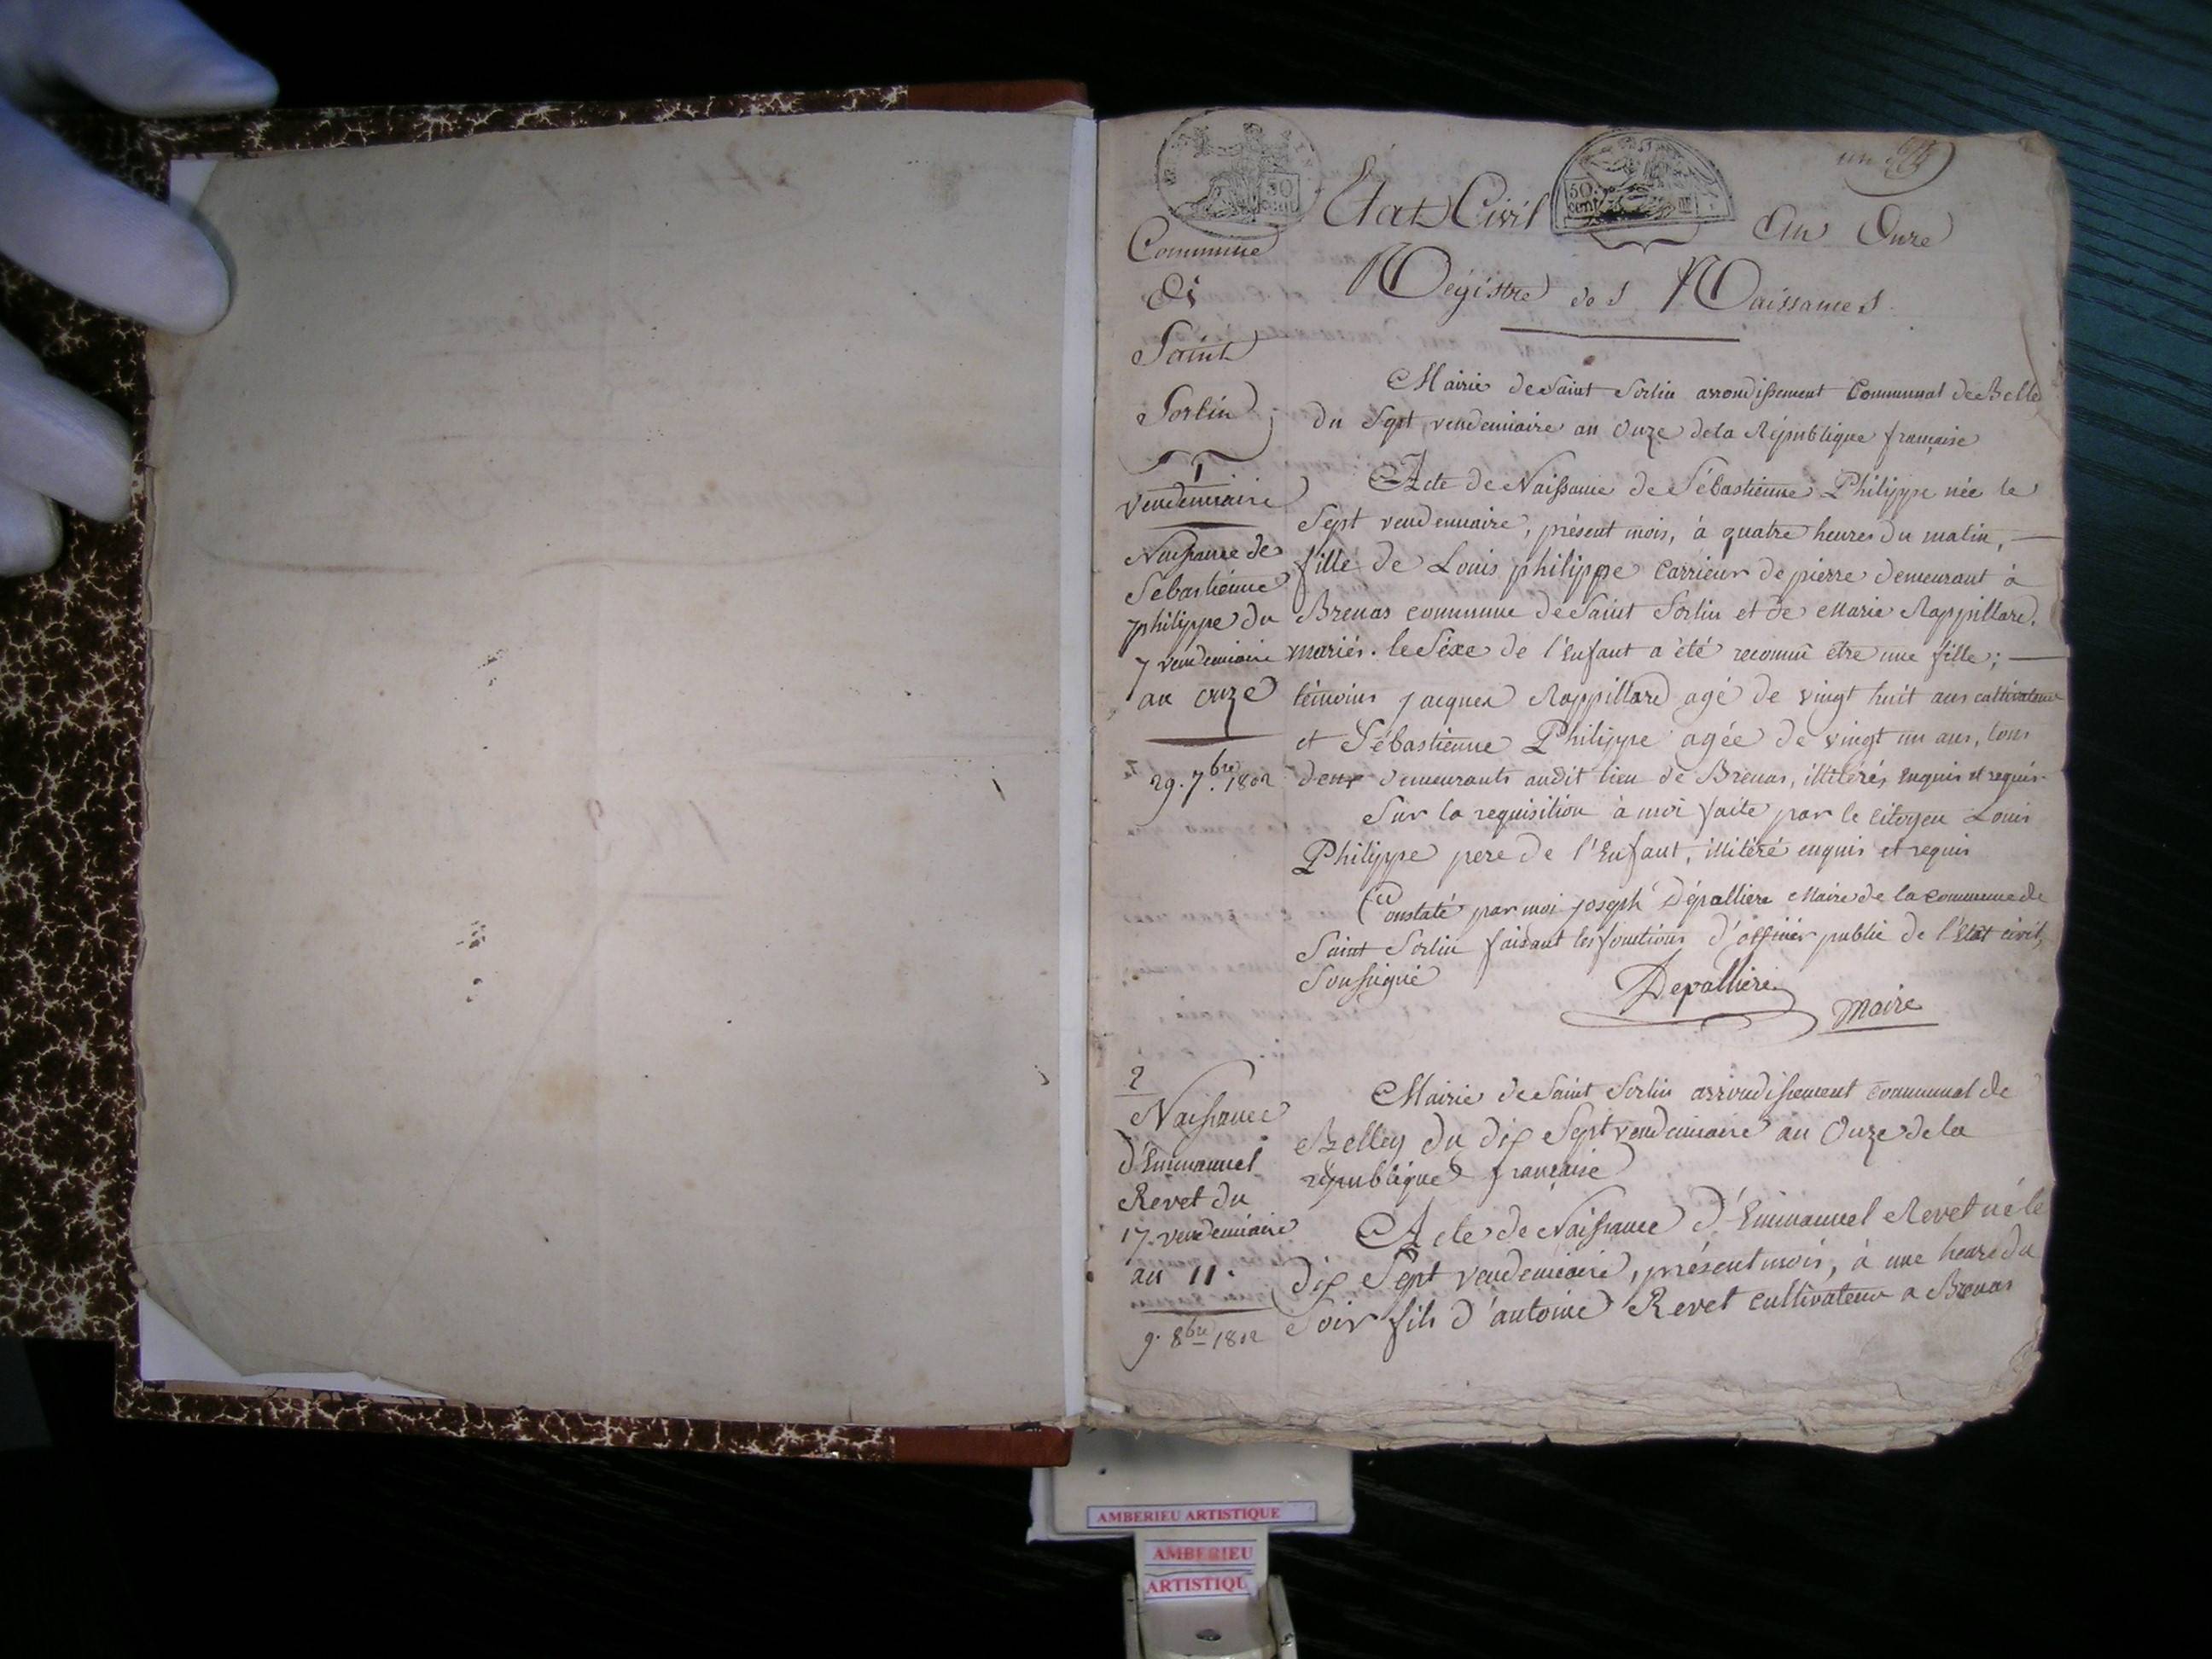 un
État Civil
50 cent
50 cent
An Onze
Commune
De
Saint
Sorlin
Régistre des Naissances
Mairie de Saint Sorlin arrondissement Communal de Belle
du Sept vendemiaire an Onze de la République française
1
vendemiaire
Naissance de
Sebastienne
philippe du
7 vendemiaire
an onze
29. 7.bre 1802
Acte de Naissance de Sébastienne Philippe née le
Sept vendemiaire, présent mois, à quatre heures du matin,
fille de Louis philippe Carrieur de pierre demeurant à
Brenas commune de Saint Sorlin et de Marie Rappillard,
mariés. le Séxe de l'Enfant a été reconnu être une fille;
témoins jacques Rappillard agé de vingt huit ans cultivateur
et Sébastienne Philippe agée de vingt un ans, tous
deux demeurants audit lieu de Brenas, illitérés enquis et requis
Sur la requisition à moi faite par le Citoyen Louis
Philippe pere de l'Enfant, illitéré enquis et requis
Constaté par moi joseph Dépallière Maire de la Commune de
Saint Sorlin faisant les fonctions d'officier public de l'Etat civil,
Soussigné
Depalliere
Maire
2
Naissance
d'Emmanuel
Revet du
17. vendemiaire
an 11.
9. 8bre 1802
Mairie de Saint Sorlin arrondissement communal de
Belley du dix Sept vendemiaire an Onze de la
république française
Acte de Naissance d'Emmanuel Revet né le
dix Sept vendemiaire, présent mois, à une heure du
Soir fils d'antoine Revet cultivateur a Brenas
AMBERIEU ARTISTIQUE
AMBERIEU
ARTISTIQU